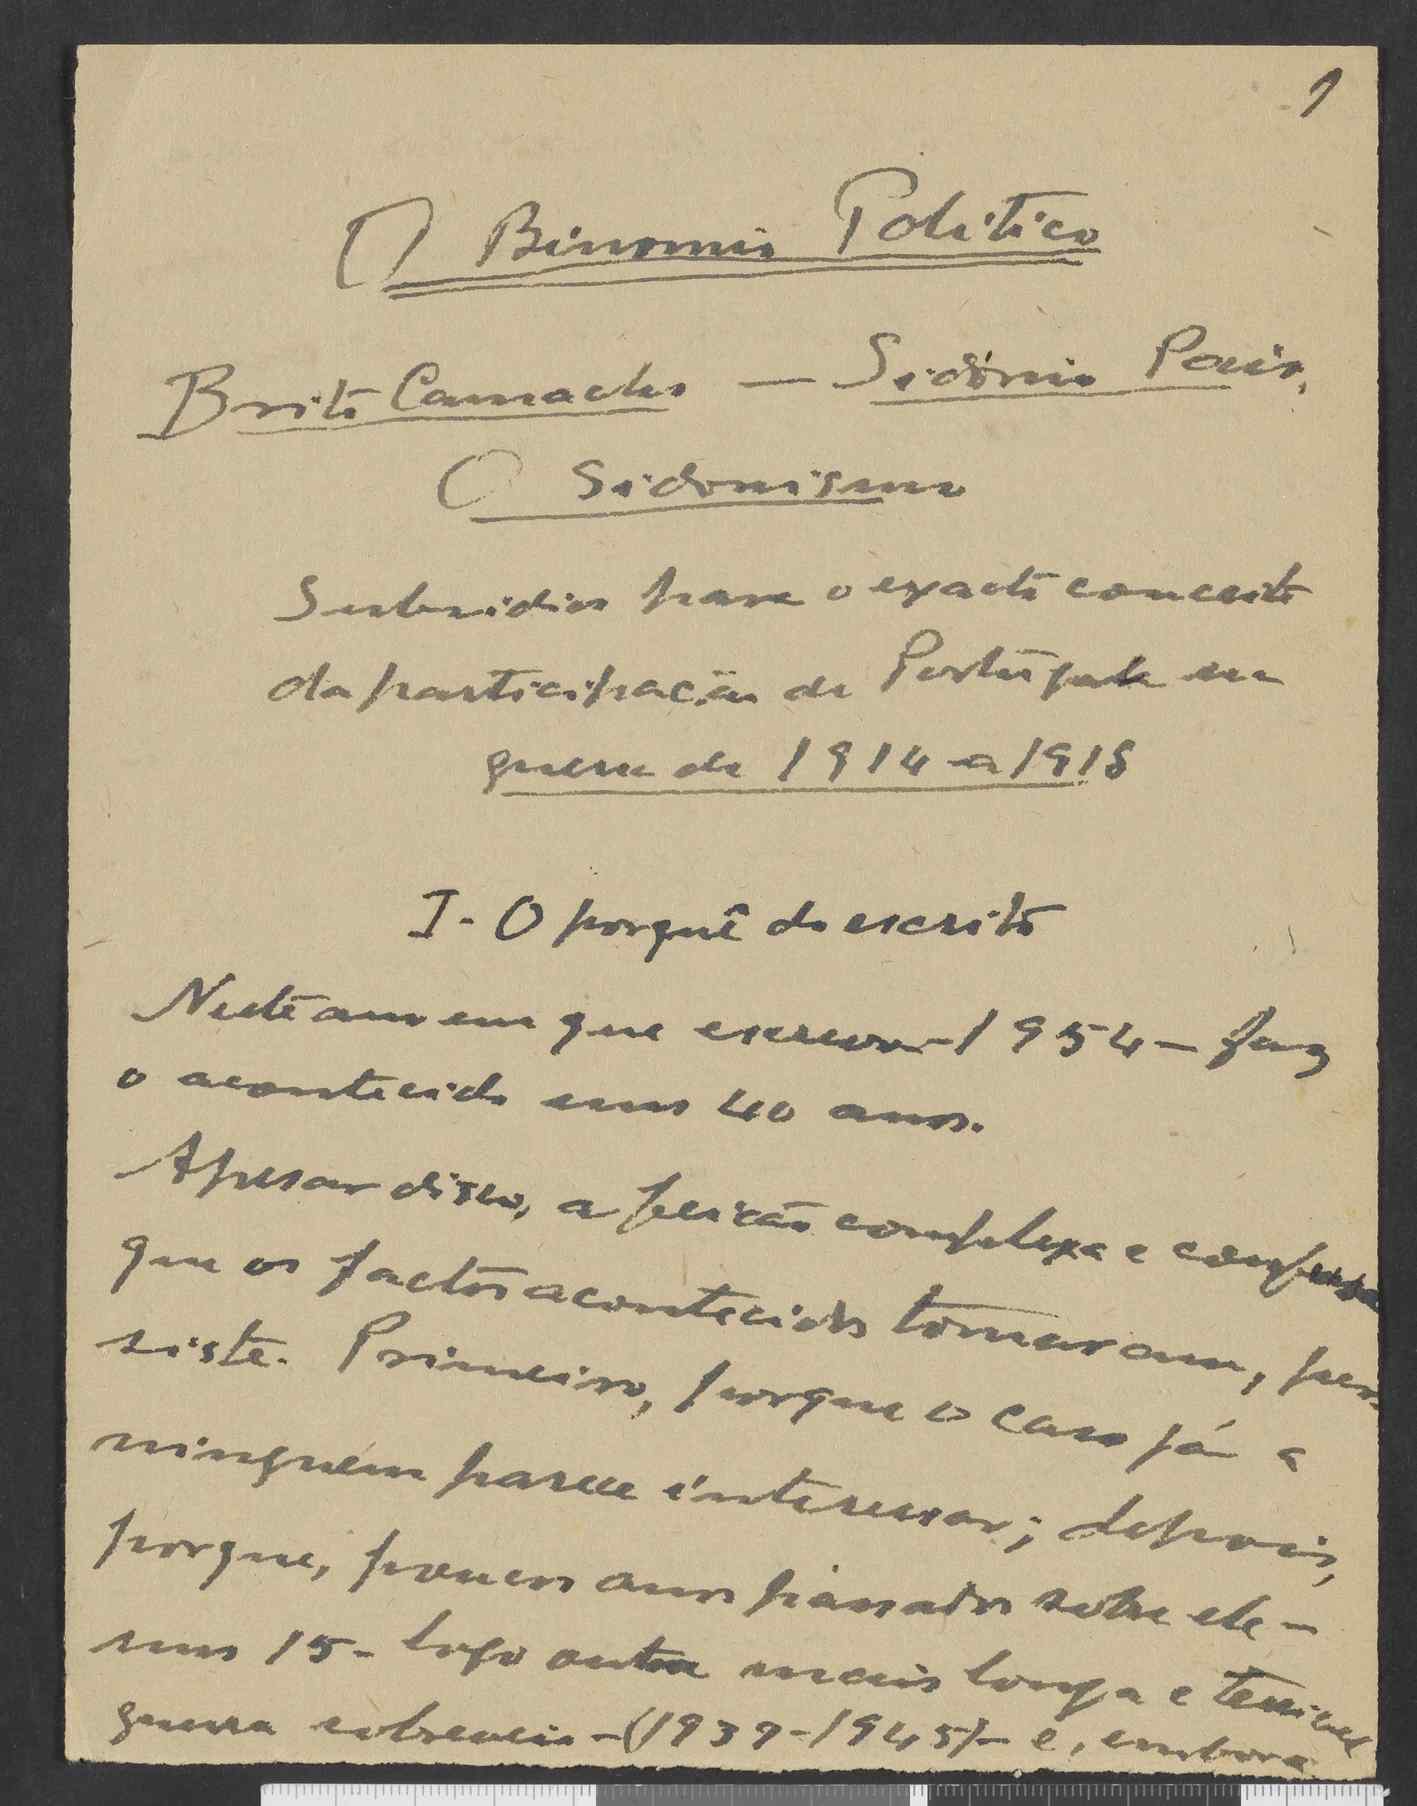 1
O Binomio Politico
Brito Camacho — Sidónio Pais,
O Sidonismo
Subsidios para o exacto conceito
da participação de Portugal na
guerra de 1914 a 1918
I - O porquê do escrito
Neste ano em que escrevo - 1954 - faz
o acontecido uns 40 anos.
Apesar disso, a feição complexa e confusa
que os factos acontecidos tomaram, per-
siste. Primeiro, porque o caso já a
ninguém parece interessar; depois,
porque, poucos anos passados sobre ele -
uns 15 - logo outra mais longa e terrivel
guerra sobreveio - (1939-1945) - e, embora